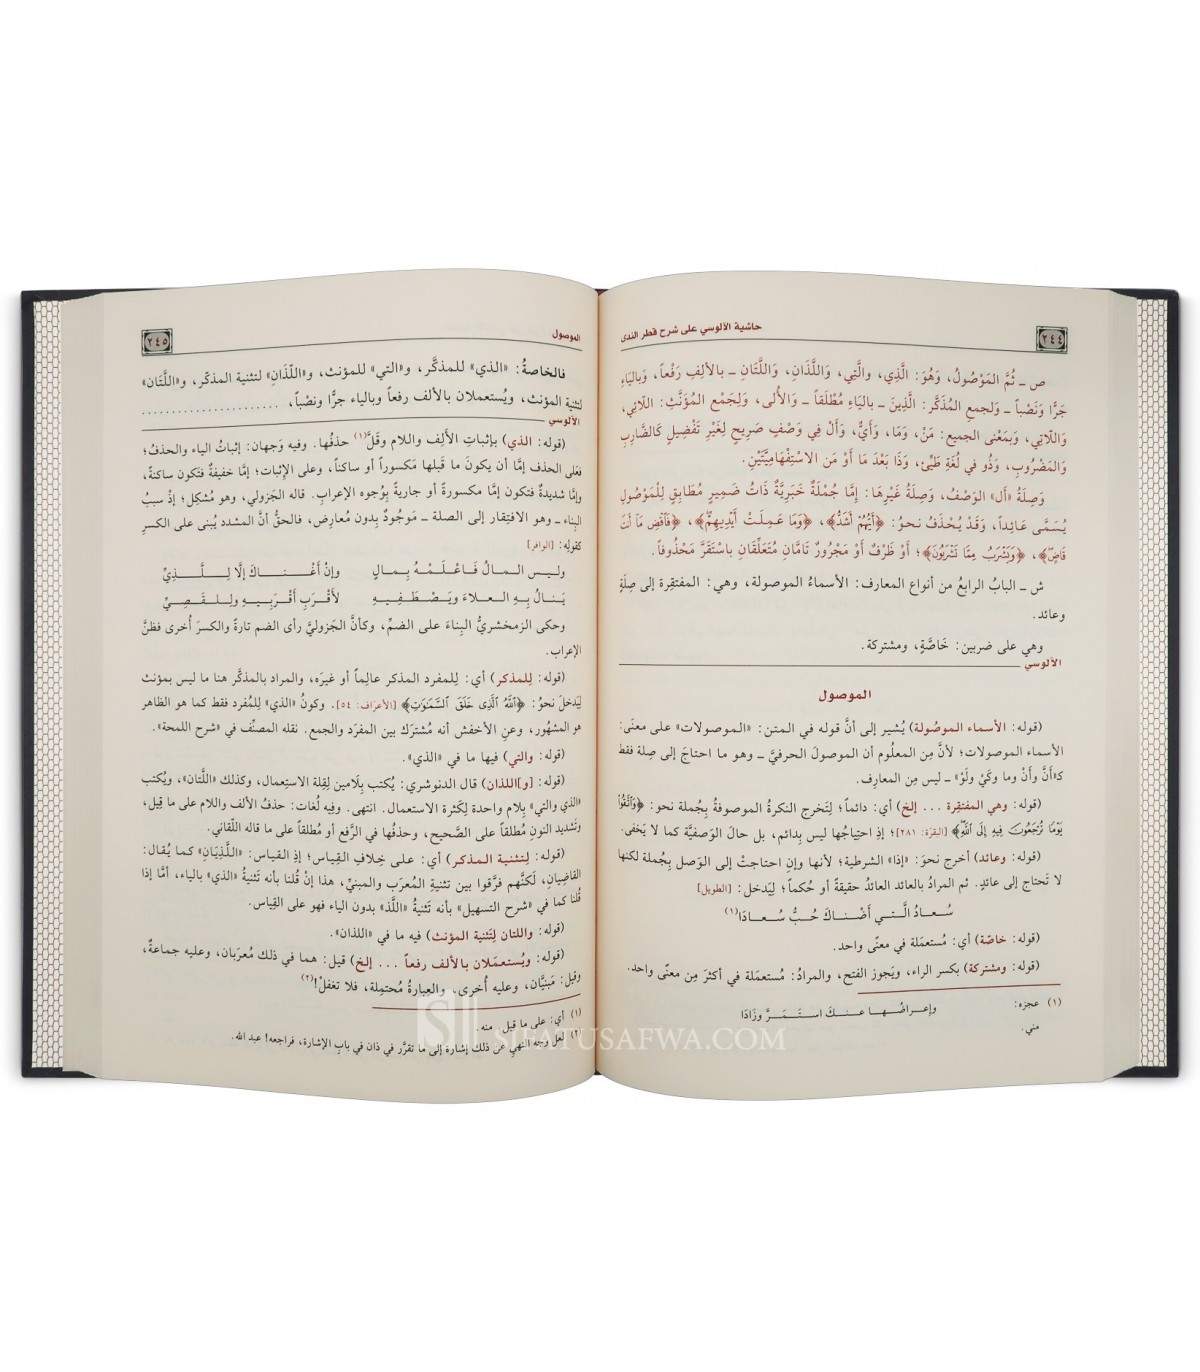 ٢٤٤
حاشية الآلوسي على شرح قطر الندى
ص ـ ثُمَّ المَوْصُولُ، وَهُوَ: الَّذِي، والَّتِي، وَاللَّذَانِ، وَاللَّتَانِ ـ بالألِفِ رَفْعاً، وَبالياءِ
جَرًّا وَنَصْباً ـ وَلجمعِ المُذَكَّرِ: الَّذِينَ ـ بالياءِ مُطْلَقاً ـ وَالأُلى، وَلِجَمْعِ المُؤَنَّثِ: اللائِي،
وَاللّاتِي، وَبِمَعْنى الجميعِ: مَنْ، وَمَا، وَأَيٌّ، وَأَلْ فِي وَصْفٍ صَرِيحٍ لِغَيْرِ تَفْضِيلٍ كَالضَّارِبِ
وَالمَضْرُوبِ، وَذُو في لُغَةِ طَيِّئٍ، وَذَا بَعْدَ مَا أَوْ مَن الاسْتِفْهامِيَّتَيْنِ.
وَصِلَةُ «أل» الوَصْفُ، وَصِلَةُ غَيْرِهَا: إِمَّا جُمْلَةٌ خَبَرِيَّةٌ ذَاتُ ضَمِيرٍ مُطَابِقٍ لِلْمَوْصُولِ
يُسَمَّى عَائِداً، وَقَدْ يُحْذَفُ نحوُ: ﴿أَيُّهُمْ أَشَدُّ﴾، ﴿وَمَا عَمِلَتْ أَيْدِيهِمْ﴾، ﴿فَاقْضِ مَا أَنتَ
قَاضٍ﴾، ﴿وَيَشْرَبُ مِمَّا تَشْرَبُونَ﴾؛ أَوْ ظَرْفٌ أَوْ مَجْرُورٌ تَامَّانِ مُتَعَلِّقَانِ باسْتَقَرَّ مَحْذُوفاً.
ش ـ البابُ الرابعُ من أنواع المعارف: الأسماءُ الموصولة، وهي: المفتقِرة إلى صِلَةٍ
وعائد.
وهي على ضربين: خَاصَّةٍ، ومشتركة.
الآلوسي
الموصول
(قوله: الأسماء الموصُولة) يُشير إلى أنَّ قوله في المتن: «الموصولات» على معنَى:
الأسماء الموصولات؛ لأنَّ مِن المعلُوم أن الموصولَ الحرفيَّ ـ وهو ما احتاجَ إلى صِلة فقط
كـ«أَنَّ وأنْ وما وكَيْ ولَوْ» ـ ليس مِن المعارِف.
(قوله: وهي المفتقِرة ... إلخ) أي: دائماً؛ لِتَخرج النكرةُ الموصوفةُ بِجُملة نحو: ﴿وَاتَّقُوا
يَوْمًا تُرْجَعُونَ فِيهِ إِلَى اللَّهِ﴾ [البقرَة: ٢٨١]؛ إذِ احتِياجُها ليس بِدائم، بل حالَ الوَصفيَّة كما لا يَخفى.
(قوله: وعائد) أخرج نحوَ: «إذا» الشرطية؛ لأنها وإنِ احتاجتْ إلى الوَصل بِجُملة لكنها
لا تَحتاج إلى عائدٍ. ثم المرادُ بالعائد العائدُ حقيقةً أو حُكماً؛ لِيَدخل: [الطويل]
سُعادُ الَّتي أَضْناكَ حُبُّ سُعادَا(١)
(قوله: خاصّة) أي: مُستعمَلة في معنًى واحد.
(قوله: ومشتركة) بكسر الراء، ويَجوز الفتح، والمرادُ: مُستعمَلة في أكثرَ مِن معنًى واحد.
(١) عجزه: وإعراضُها عنكَ استَمَرَّ وزَادَا
مني.
الموصول
٢٤٥
فالخاصةُ: «الذي» للمذكَّر، و«التي» للمؤنث، و«اللّذَانِ» لتثنية المذكّر، و«اللَّتَان»
لتثنية المؤنث، ويُستعملان بالألف رفعاً وبالياء جرًّا ونصْباً، ......................
الآلوسي
(قوله: الذي) بإثباتِ الألِف واللام وقَلَّ(١) حذفُها. وفيه وَجهان: إثباتُ الياء والحذفُ؛
فعَلى الحذف إمَّا أن يكونَ ما قَبلها مَكسوراً أو ساكناً، وعلى الإثبات؛ إمَّا خفيفةٌ فتكون ساكنةً،
وإمَّا شديدةٌ فتكون إمَّا مكسورةً أو جاريةً بِوُجوه الإعراب. قاله الجَزولي، وهو مُشكِل؛ إذْ سببُ
البِناء ـ وهو الافتِقار إلى الصلة ـ مَوجُودٌ بِدون مُعارِض، فالحقُّ أنَّ المشدد يُبنى على الكسرِ
كقولِه: [الوافر]
وليس المالُ فَاعْلَمْهُ بِمالٍ وإنْ أَغْناكَ إلَّا لِلَّذِيِّ
يَنالُ بِهِ العلاءَ ويَصْطَفِيهِ لأَقْرَبِ أَقْرَبِيهِ ولِلقَصِيِّ
وحكى الزمخشريُّ البِناءَ على الضمِّ، وكأنَّ الجَزوليَّ رأى الضم تارةً والكسرَ أُخرى فظنَّ
الإعراب.
(قوله: لِلمذكر) أي: لِلمفرد المذكر عالِماً أو غيرَه، والمراد بالمذكَّر هنا ما ليس بمؤنث
لِيَدخلَ نحوُ: ﴿اللَّهُ الَّذِي خَلَقَ السَّمَاوَاتِ﴾ [الأعرَاف: ٥٤]. وكونُ «الذي» لِلمُفرد فقط كما هو الظاهر
هو المشهُور، وعنِ الأخفش أنه مُشترَك بين المفرَد والجمع. نقله المصنِّف في «شرح اللمحة».
(قوله: والتي) فيها ما في «الذي».
(قوله: [و]اللذان) قال الدنوشري: يُكتب بِلامين لِقلة الاستِعمال، وكذلك «اللَّتان»، ويُكتب
«الذي والتي» بِلام واحدة لِكَثرة الاستعمال. انتهى. وفيه لُغات: حذفُ الألف واللام على ما قِيل،
وتَشديد النونِ مُطلقاً على الصَّحيح، وحذفُها في الرَّفع أو مُطلقاً على ما قاله اللّقاني.
(قوله: لِتثنية المذكر) أي: على خِلافِ القِياس؛ إذِ القِياس: «اللَّذِيَانِ» كما يُقال:
القاضِيانِ، لَكنَّهم فرَّقوا بين تثنيةِ المُعرَب والمبنيِّ، هذا إنْ قُلنا بأنه تَثنيةُ «الذي» بالياء، أمَّا إذا
قُلنا كما في «شرح التسهيل» بأنه تَثنيةُ «اللَّذ» بدون الياء فهو على القِياس.
(قوله: واللتان لِتَثنية المؤنث) فيه ما في «اللذان».
(قوله: ويُستعمَلان بالألف رفعاً ... إلخ) قيل: هما في ذلك مُعرَبان، وعليه جماعةٌ،
وقيل: مَبنيَّان، وعليه أُخرى، والعِبارةُ مُحتمِلة، فلا تَغفلْ!(٢)
(١) أي: على ما قيل. منه.
(٢) لعل وجه النهي عن ذلك إشارة إلى ما تقرَّر في ذان في بابِ الإشارة، فراجعه! عبد الله.
SIFATUSAFWA.COM